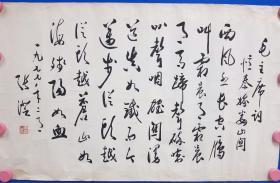 毛主席词
忆秦娥娄山関
西风烈长空雁
叫霜晨月霜晨
月马蹄聲碎喇
叭聲咽雄関漫
道真如鐵而今
迈步從头越
從头越苍山如
海残陽如血
一九七七年